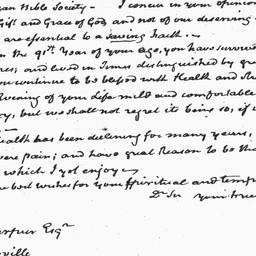 can Bible Society — I concur in your opinion
Gift and Grace of God, and not of our deserving
are essential to a saving faith. —
In the 91st Year of your age, you have survived
and lived in Times distinguished by
you continue to be blessed with Health and
Evening of your Life mild and comfortable
but we shall not regret it being so, if
Health has been declining for many years,
pain; and have great Reason to be tha
which I yet enjoy —
best wishes for your Spiritual and temp
Dr Sir your true
Esqr
ville